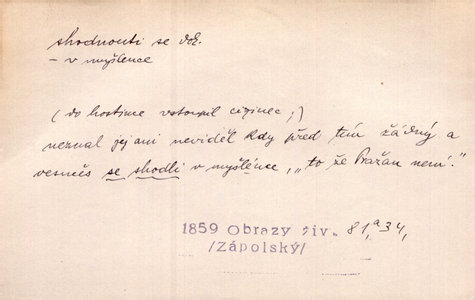 shodnouti se dok.
– v myšlence
(do hostince vstoupil cizinec;)
neznal jej ani neviděl kdy před tím žádný a
vesměs se shodli v myšlénce, „to že Pražan není."
1859 Obrazy živ. 81,a34,
/Zápolský/